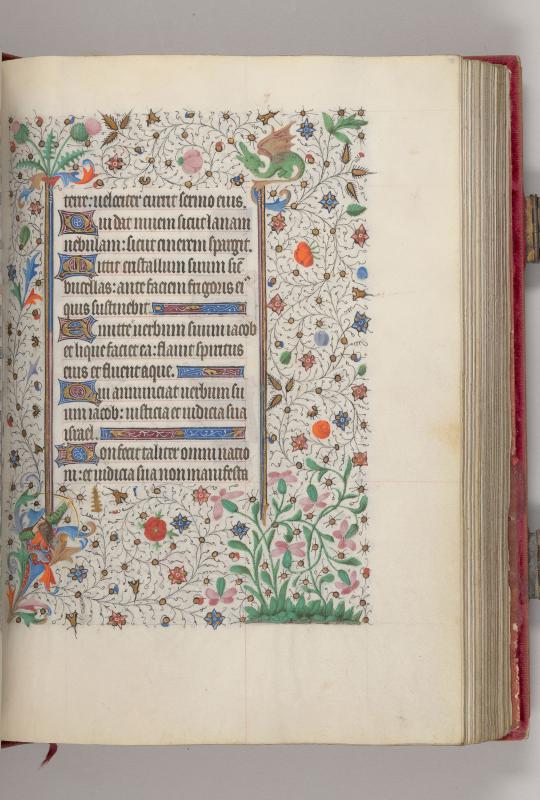 terre: velociter currit sermo eius.
Qui dat nivem sicut lanam
nebulam: sicut cinerem spargit.
Mittit cristallum suum sic̄
bucellas: ante faciem frigoris eiꝰ
quis sustinebit
Emittet verbum suum iacob
et liquefaciet ea: flavit spiritus
eius et fluent aque.
Qui annunciat verbum su
um iacob: iusticia et iudicia sua
israel.
Non fecit taliter omni natio
ni: et iudicia sua non manifesta